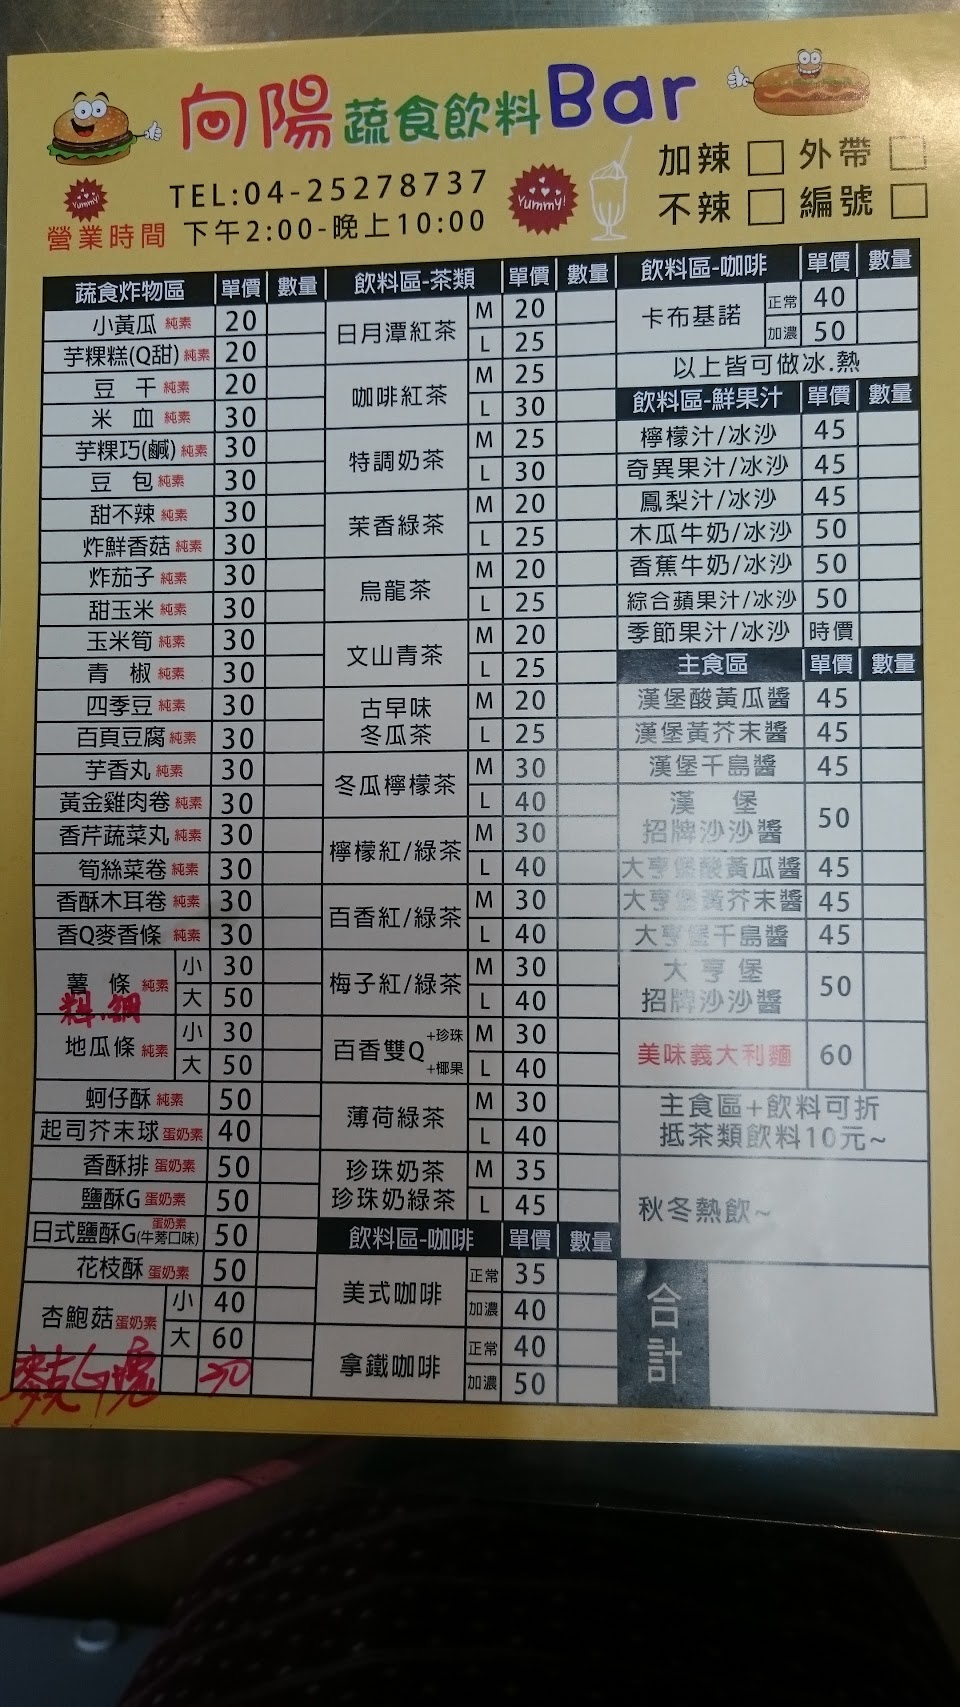 向陽蔬食飲料Bar
TEL:04-25278737
營業時間 下午2:00-晚上10:00
Yummy!
Yummy!
加辣 外帶
不辣 編號
蔬食炸物區 單價 數量
小黃瓜 純素 20
芋粿糕(Q甜) 純素 20
豆干 純素 20
米血 純素 30
芋粿巧(鹹) 純素 30
豆包 純素 30
甜不辣 純素 30
炸鮮香菇 純素 30
炸茄子 純素 30
甜玉米 純素 30
玉米筍 純素 30
青椒 純素 30
四季豆 純素 30
百頁豆腐 純素 30
芋香丸 純素 30
黃金雞肉卷 純素 30
香芹蔬菜丸 純素 30
筍絲菜卷 純素 30
香酥木耳卷 純素 30
香Q麥香條 純素 30
薯條 純素 小 30
大 50
地瓜條 純素 小 30
大 50
蚵仔酥 純素 50
起司芥末球 蛋奶素 40
香酥排 蛋奶素 50
鹽酥G 蛋奶素 50
日式鹽酥G 蛋奶素 (牛蒡口味) 50
花枝酥 蛋奶素 50
杏鮑菇 蛋奶素 小 40
大 60
30
飲料區-茶類 單價 數量
日月潭紅茶 M 20
L 25
咖啡紅茶 M 25
L 30
特調奶茶 M 25
L 30
茉香綠茶 M 20
L 25
烏龍茶 M 20
L 25
文山青茶 M 20
L 25
古早味 M 20
冬瓜茶 L 25
冬瓜檸檬茶 M 30
L 40
檸檬紅/綠茶 M 30
L 40
百香紅/綠茶 M 30
L 40
梅子紅/綠茶 M 30
L 40
百香雙Q +珍珠 M 30
+椰果 L 40
薄荷綠茶 M 30
L 40
珍珠奶茶 M 35
珍珠奶綠茶 L 45
飲料區-咖啡 單價 數量
美式咖啡 正常 35
加濃 40
拿鐵咖啡 正常 40
加濃 50
飲料區-咖啡 單價 數量
卡布基諾 正常 40
加濃 50
以上皆可做冰.熱
飲料區-鮮果汁 單價 數量
檸檬汁/冰沙 45
奇異果汁/冰沙 45
鳳梨汁/冰沙 45
木瓜牛奶/冰沙 50
香蕉牛奶/冰沙 50
綜合蘋果汁/冰沙 50
季節果汁/冰沙 時價
主食區 單價 數量
漢堡酸黃瓜醬 45
漢堡黃芥末醬 45
漢堡千島醬 45
漢堡
招牌沙沙醬 50
大亨堡酸黃瓜醬 45
大亨堡黃芥末醬 45
大亨堡千島醬 45
大亨堡
招牌沙沙醬 50
美味義大利麵 60
主食區+飲料可折
抵茶類飲料10元~
秋冬熱飲~
合計